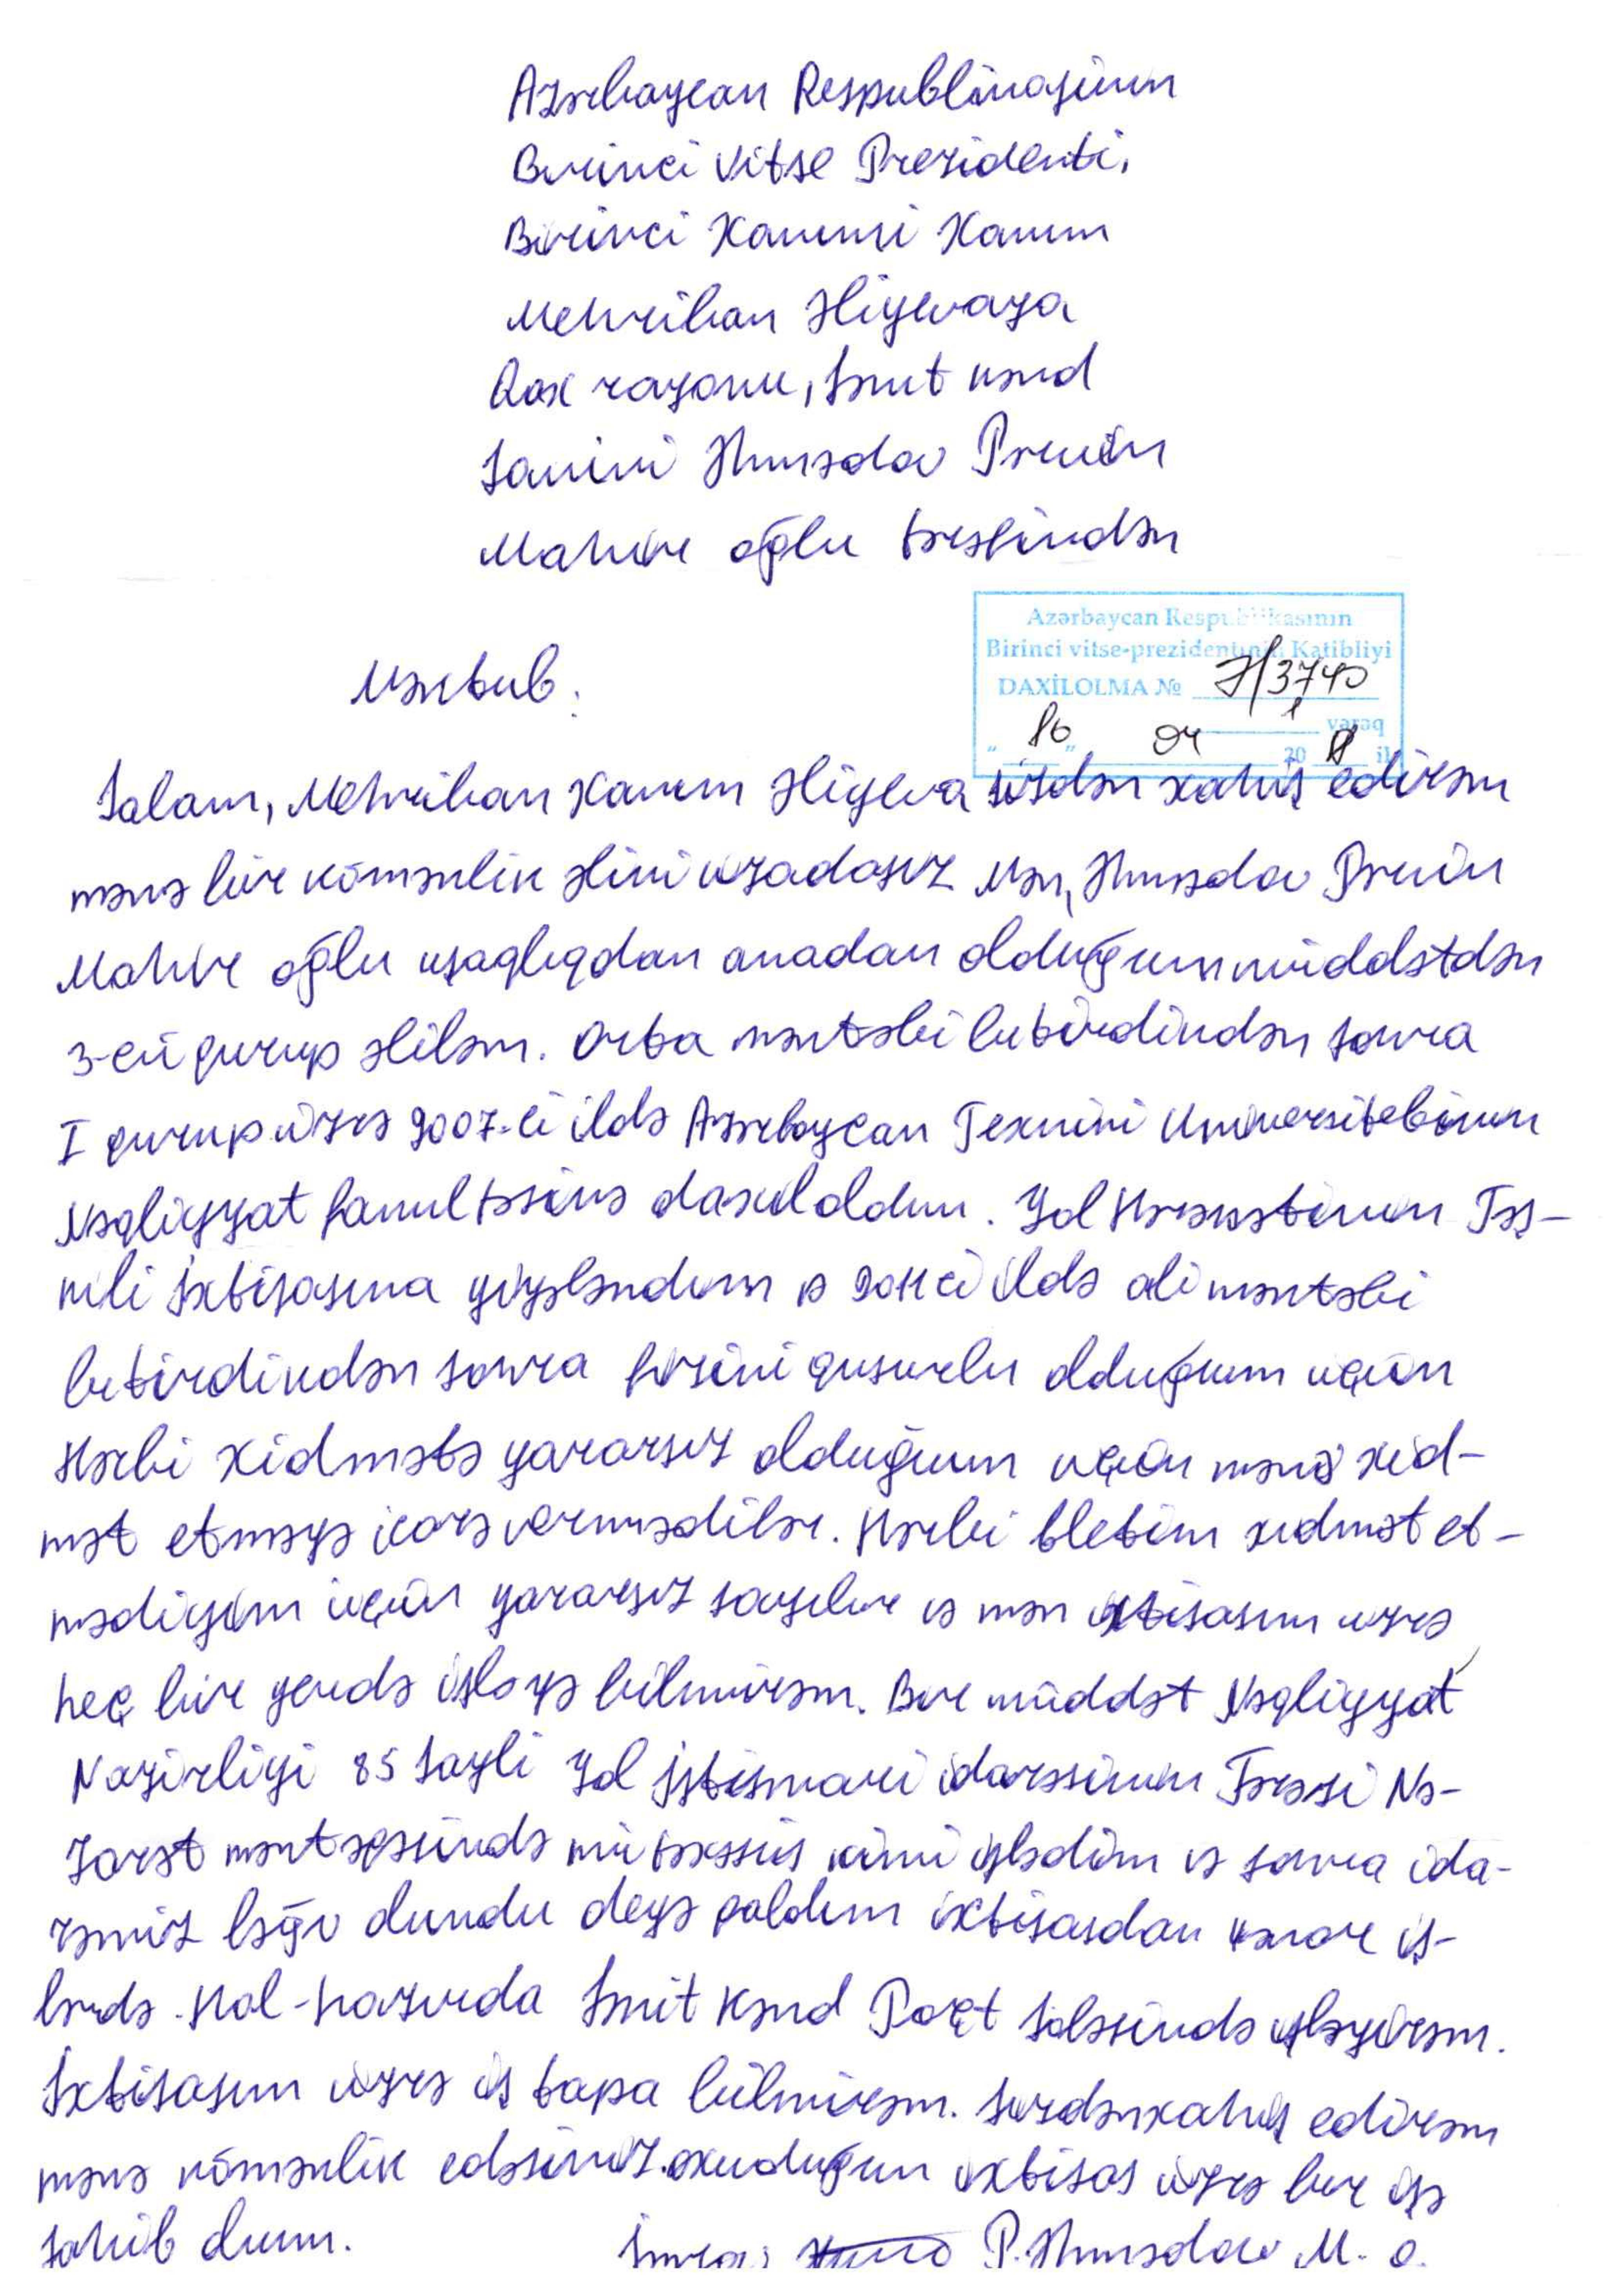 Azərbaycan Respublikasının
Birinci Vitse Prezidenti,
Birinci Xanımı Xanım
Mehriban Əliyevaya
Qax rayonu, İnit kənd
Sakini Əhmədov Pərviz
Mahir oğlu tərəfindən
Azərbaycan Respublikasının
Birinci vitse-prezidentinin Katibliyi
DAXİLOLMA № Ə/3740
1 vərəq
" 16 " 04 20 il
Məktub.
Salam, Mehriban xanım Əliyeva sizdən xahiş edirəm
mənə bir köməklik əlini uzadasız Mən, Əhmədov
Mahir oğlu uşaqlıqdan anadan olduğum müddətdən
3-cü qurup əliləm. Orta məktəbi bitirdikdən sonra
I qurup üzrə 2007-ci ildə Azərbaycan Texniki Universitetinin
Nəqliyyat fakultəsinə daxil oldum. Yol Hərəkətinin Təş-
kili İxtisasına yiyələndim və 2011 ci ildə ali məktəbi
bitirdikdən sonra fiziki qusurlu olduğum üçün
Hərbi xidmətə yararsız olduğum üçün mənə xid-
mət etməyə icazə verməдilər. Hərbi bletim xidmət et-
mədiyim üçün yararsız sayılır və mən ixtisasım üzrə
heç bir yerdə işləyə bilmirəm. Bir müddət Nəqliyyat
Nazirliyi 85 Saylı Yol İstismarı idarəsinin Tərəzi Nə-
zarət məntəqəsində mütəxəssis kimi işlədim və sonra ida-
rəmiz ləğv olundu deyə qaldım ixtisasdan kənar iş-
lərdə. Hal-hazırda kənd Poçt Şöbəsində işləyirəm.
İxtisasım üzrə iş tapa bilmirəm. Sizdən xahiş edirəm
mənə köməklik edəsiniz. oxuduğum ixtisas üzrə bir işə
sahib olum.
İmza: P. Əhmədov M. o.